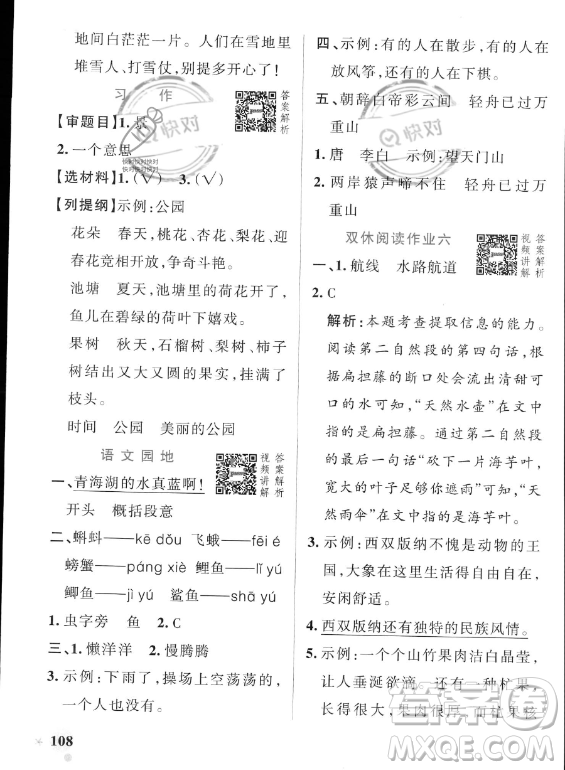 地间白茫茫一片。人们在雪地里
堆雪人、打雪仗，别提多开心了！
习 作
答案解析
【审题目】1. 景
2. 一个意思
【选材料】1.（√） 3.（√）
【列提纲】示例：公园
花朵 春天，桃花、杏花、梨花、
迎春花竞相开放，争奇斗艳。
池塘 夏天，池塘里的荷花开了，
鱼儿在碧绿的荷叶下嬉戏。
果树 秋天，石榴树、梨树、柿子
树结出又大又圆的果实，挂满了
枝头。
时间 公园 美丽的公园
语文园地
视频讲解
答案解析
一、青海湖的水真蓝啊！
开头 概括段意
二、蝌蚪——kē dǒu 飞蛾——fēi é
螃蟹——páng xiè 鲤鱼——lǐ yú
鲫鱼——jì yú 鲨鱼——shā yú
1. 虫字旁 2. C
三、1. 懒洋洋 2. 慢腾腾
3. 示例：下雨了，操场上空荡荡的，
一个人也没有。
108
四、示例：有的人在散步，有的人在
放风筝，还有的人在下棋。
五、朝辞白帝彩云间 轻舟已过万
重山
1. 唐 李白 示例：望天门山
2. 两岸猿声啼不住 轻舟已过万
重山
双休阅读作业六
视频讲解
答案解析
一、1. 航线 水路航道
2. C
解析：本题考查提取信息的能力。
阅读第二自然段的第四句话，
根据扁担藤的断口处会流出清甜可
口的水，可知“天然水壶”在文中
指的是扁担藤。通过阅读第二自
然段的最后一句话“砍下一片海芋叶，
宽大的叶子足够你遮雨”可知“天
然雨伞”在文中指的是海芋叶。
3. 示例：西双版纳不愧是动物的王
国，大象在这里迈着缓慢的步子，
安闲舒适。
4. 西双版纳还有独特的民族风情。
5. 示例：一个个山竹果肉洁白晶莹，
让人垂涎欲滴，还有一种芒果，
长得很大，果肉很厚，而椰果核
快对
快对快对快对
快对快对快对
作业答案
MXQE.COM